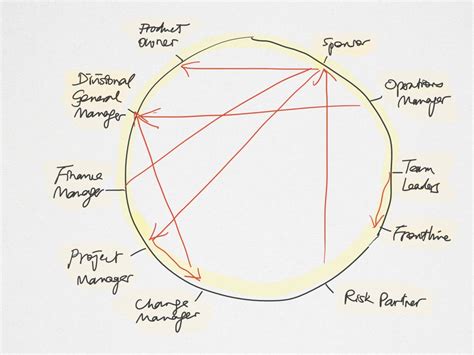 Product
owner
Sponsor
Divisional
General
Manager
Operations
Manager
Finance
Manager
Team
Leaders
Project
Manager
Frontline
Change
Manager
Risk Partner